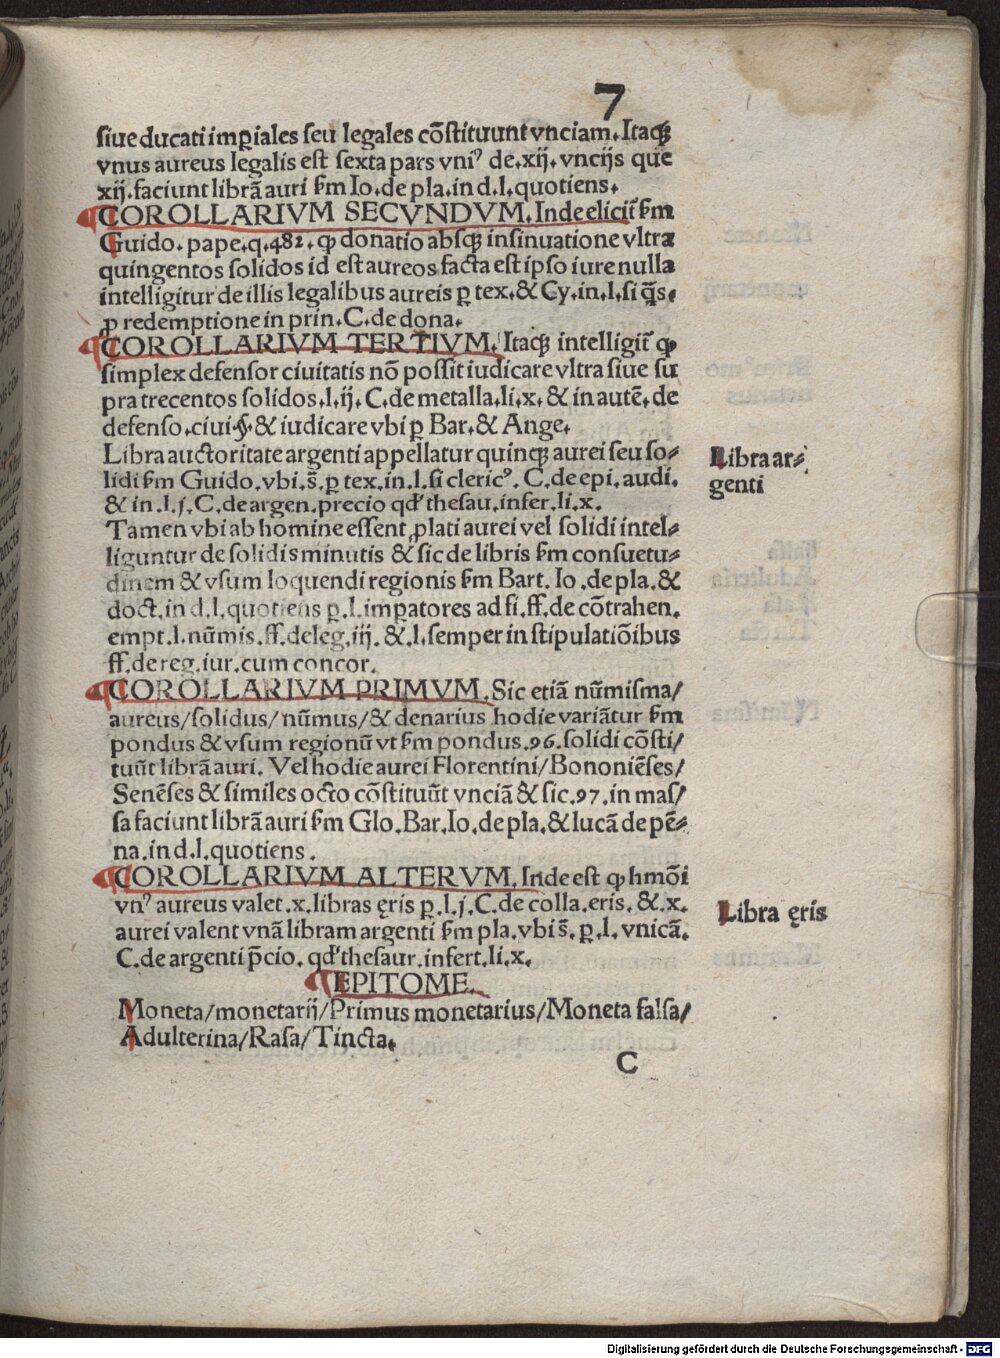 7
siue ducati imꝑiales seu legales cōstituunt vnciam. Itaqꝫ
vnus aureus legalis est sexta pars vniꝰ de.xij.vncijs que
xij.faciunt librā auri ẜm Io.de pla.in d.l.quotiens.
¶COROLLARIVM SECVNDVM. Inde elicit᷑ ẜm
Guido.pape.q.482.ꝙ donatio absqꝫ insinuatione vltra
quingentos solidos id est aureos facta est ipso iure nulla
intelligitur de illis legalibus aureis ꝑ tex.& Cy.in.l.si q̄s.
ꝓ redemptione in prin.C.de dona.
¶COROLLARIVM TERTIVM. Itaqꝫ intelligit᷑ ꝙ
simplex defensor ciuitatis nō possit iudicare vltra siue su
pra trecentos solidos.l.ij.C.de metalla.li.x.& in autē.de
defenso.ciui.§.& iudicare vbi ꝑ Bar.& Ange.
Libra auctoritate argenti appellatur quinqꝫ aurei seu so⸗
lidi ẜm Guido.vbi.s̄.ꝑ tex.in.l.si clericꝰ. C.de epi.audi.
& in.l.j.C.de argen.precio qď thesau.infer.li.x.
Tamen vbi ab homine essent ꝓlati aurei vel solidi intel⸗
liguntur de solidis minutis & sic de libris ẜm consuetu⸗
dinem & vsum loquendi regionis ẜm Bart.Io.de pla.&
doct.in d.l.quotiens ꝑ.l.imꝑatores ad fi.ff.de cōtrahen.
empt.l.nūmis.ff.de leg.iij.&.l.semper in stipulatiōibus
ff.de reg.iur.cum concor.
¶COROLLARIVM PRIMVM. Sic etiā nūmisma/
aureus/solidus/nūmus/& denarius hodie variātur ẜm
pondus & vsum regionū vt ẜm pondus.96.solidi cōsti/
tuūt librā auri. Vel hodie aurei Florentini/Bononiēses/
Senēses & similes octo cōstituūt vnciā & sic.97.in mas/
sa faciunt librā auri ẜm Glo.Bar.Io.de pla.& lucā de pē⸗
na.in d.l.quotiens.
¶COROLLARIVM ALTERVM. Inde est ꝙ hmōi
vnꝰ aureus valet.x.libras ęris ꝑ.l.j.C.de colla.eris.&.x.
aurei valent vnā libram argenti ẜm pla.vbi s̄.ꝑ.l.vnicā.
C.de argenti p̄cio.qď thesaur.infert.li.x.
¶EPITOME.
Moneta/monetarij/Primus monetarius/Moneta falsa/
Adulterina/Rasa/Tincta.
C
Libra ar⸗
genti
Libra ęris
Digitalisierung gefördert durch die Deutsche Forschungsgemeinschaft - DFG